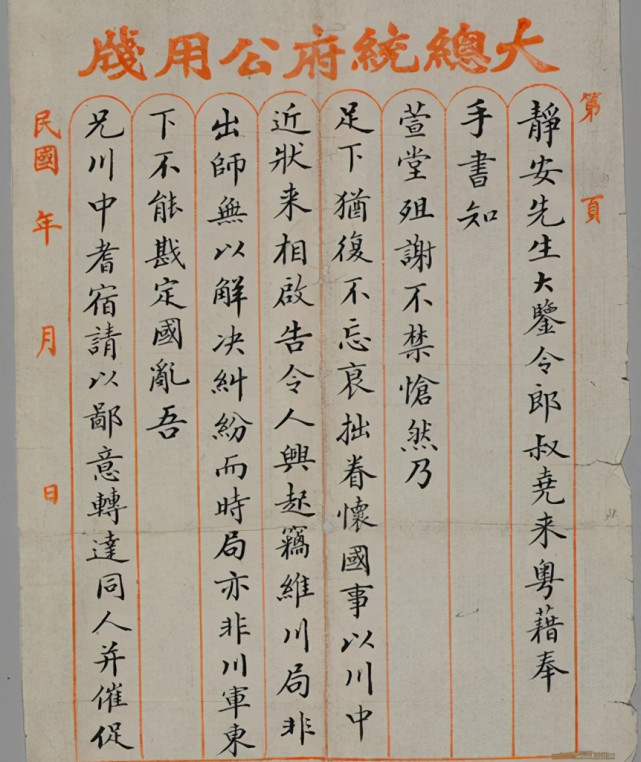 大總統府公用牋
第 頁
靜安先生大鑒令郎叔堯来粵藉奉
手書知
萱堂殂謝不禁愴然乃
足下猶復不忘衰拙眷懷國事以川中
近狀来相啟告令人興起竊維川局非
出師無以解决糾紛而時局亦非川軍東
下不能戡定國亂吾
兄川中耆宿請以鄙意轉達同人并催促
民國 年 月 日